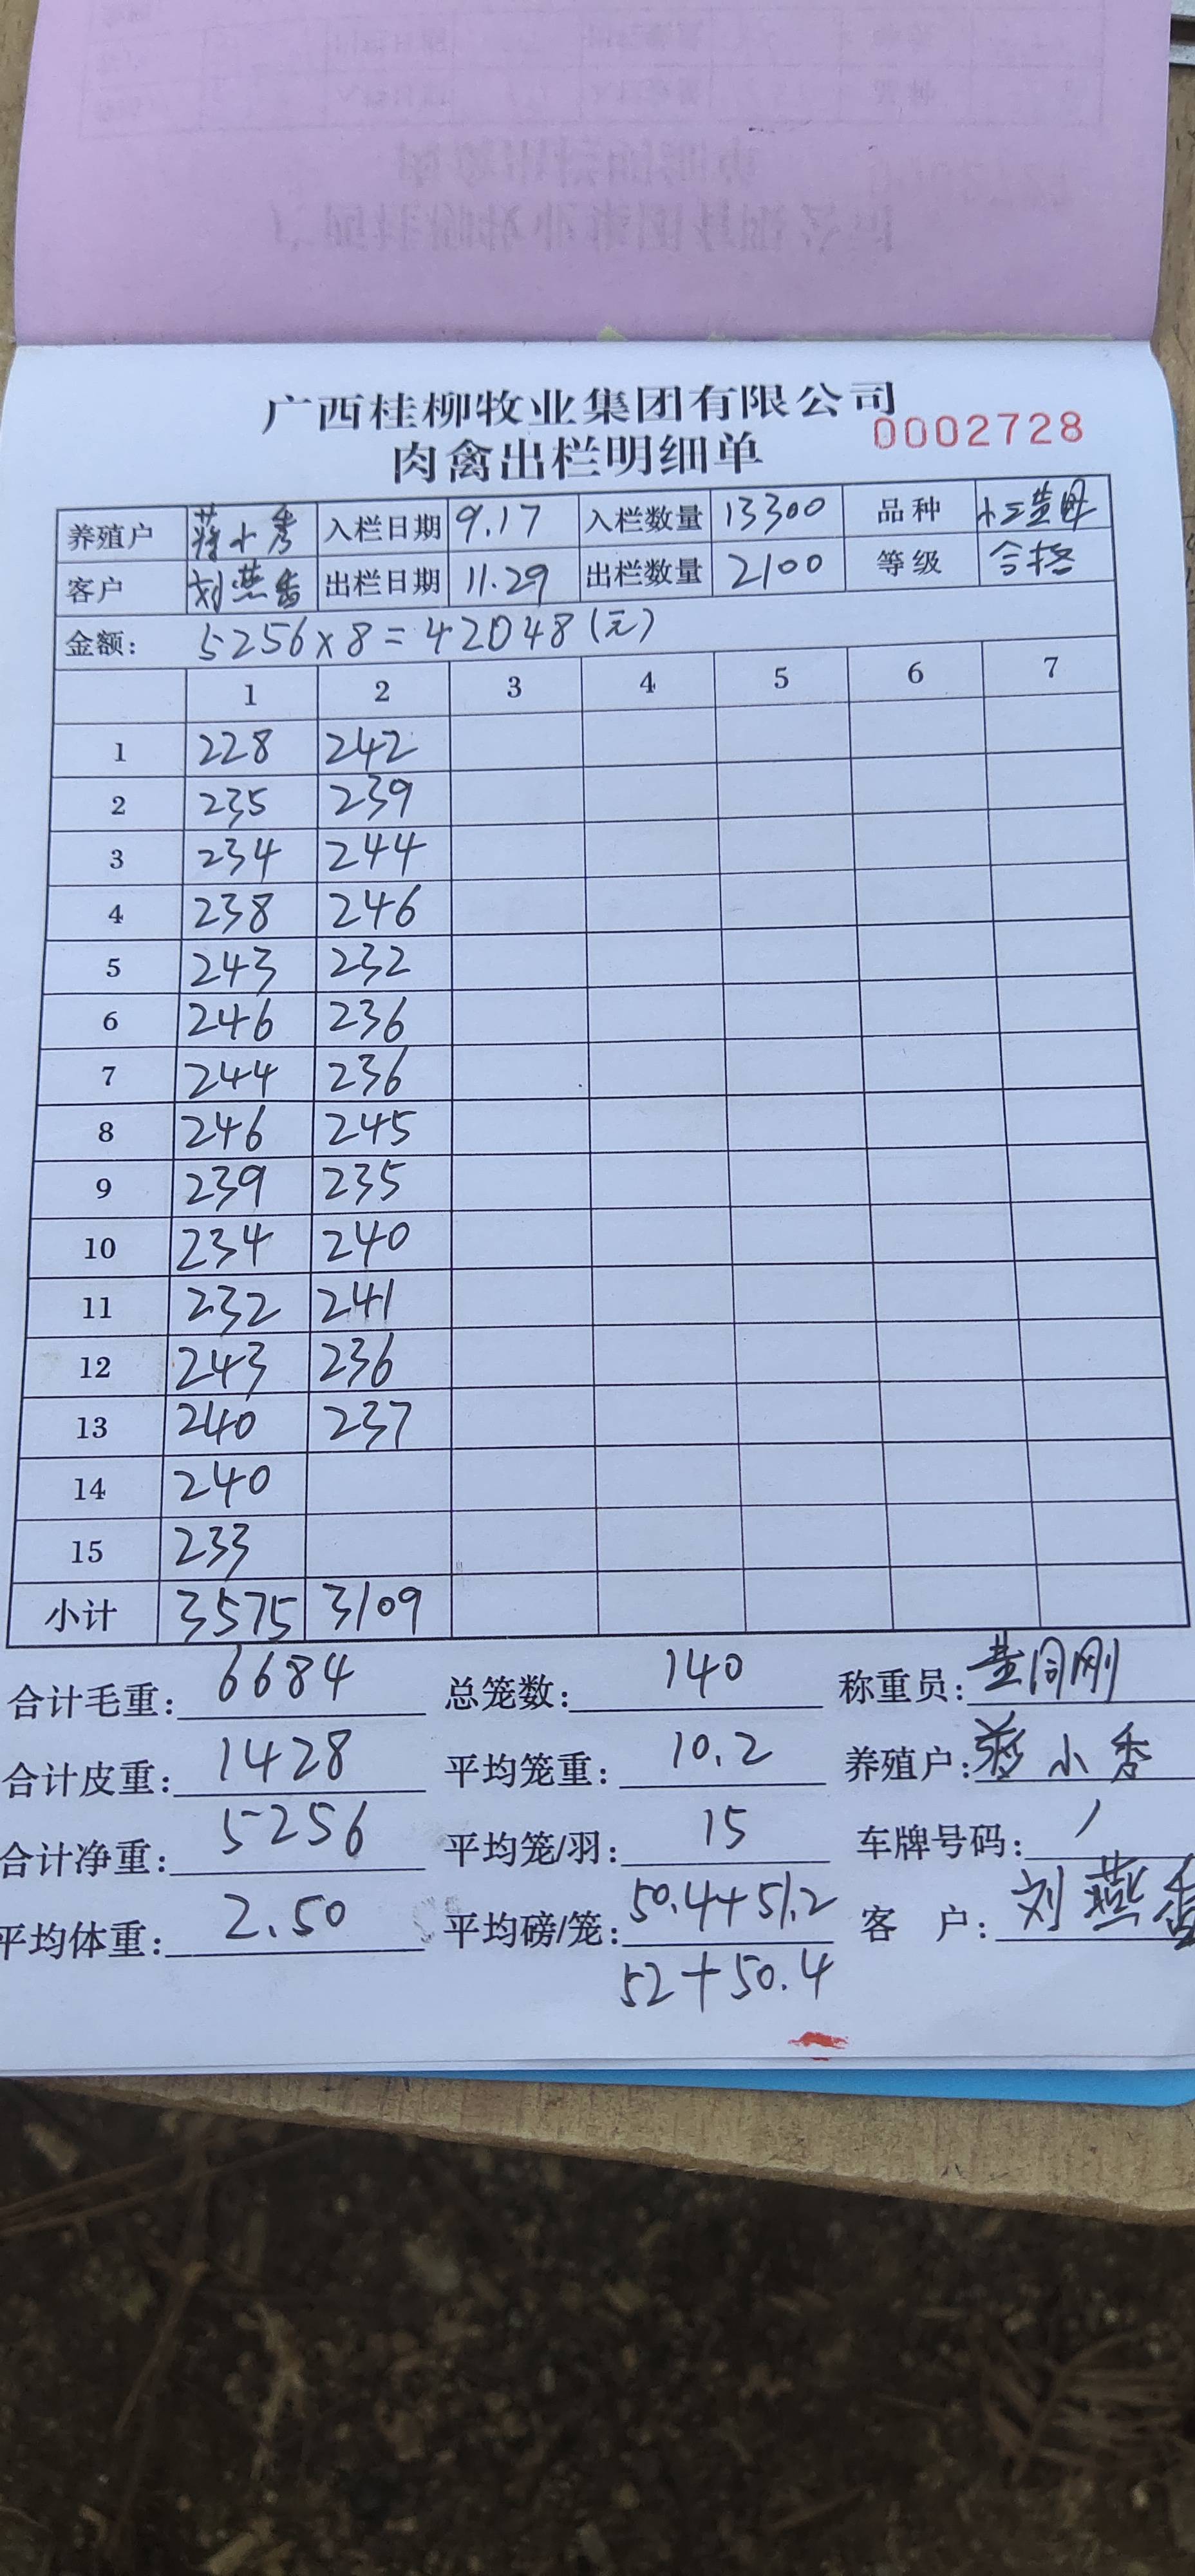 广西桂柳牧业集团有限公司
肉禽出栏明细单 0002728
养殖户 蒋小秀 入栏日期 9.17 入栏数量 13300 品种
客户 刘燕香 出栏日期 11.29 出栏数量 2100 等级 合格
金额: 5256×8=42048(元)
1 2 3 4 5 6 7
1 228 242
2 235 239
3 234 244
4 238 246
5 243 232
6 246 236
7 244 236
8 246 245
9 239 235
10 234 240
11 232 241
12 243 236
13 240 237
14 240
15 233
小计 3575 3109
合计毛重: 6684 总笼数: 140 称重员:
合计皮重: 1428 平均笼重: 10.2 养殖户: 蒋小秀
合计净重: 5256 平均笼/羽: 15 车牌号码: /
平均体重: 2.50 平均磅/笼: 50.4+51.2 客户: 刘燕香
52+50.4